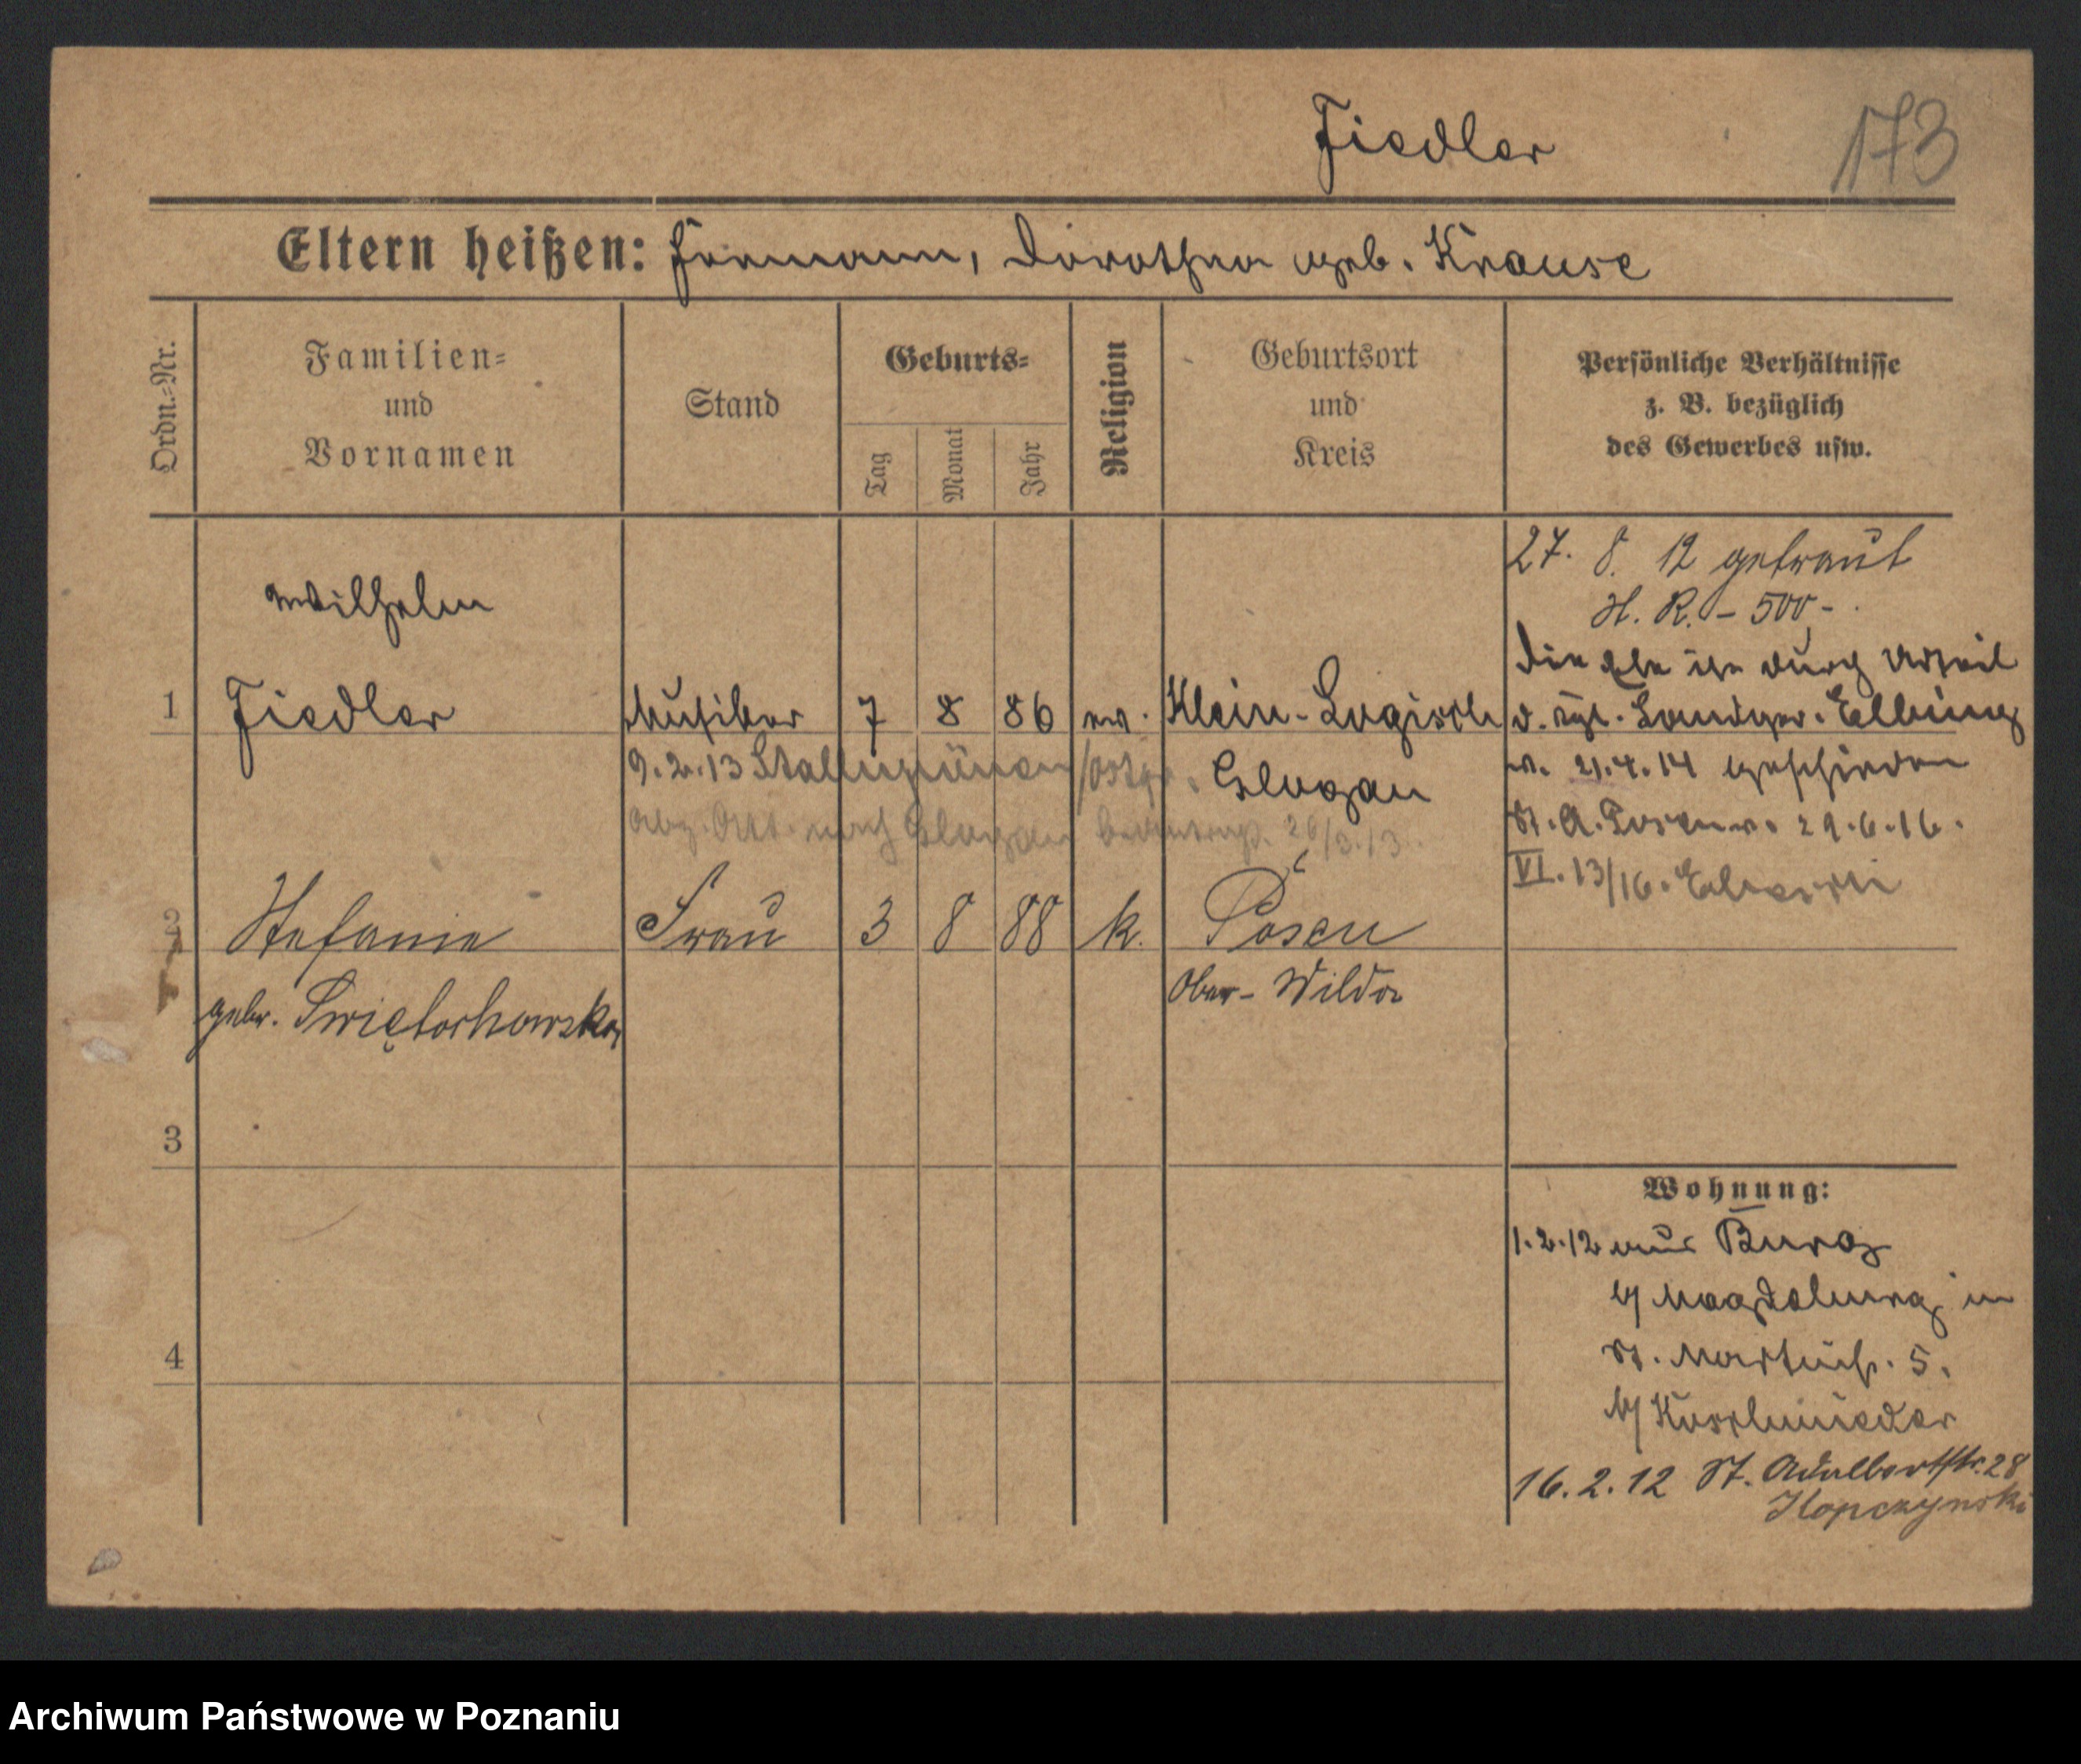 Fiedler
173
Eltern heißen: Hermann, Dorothea geb. Krause
Ordn.-Nr.
Familien-
und
Vornamen
Stand
Geburts-
Tag
Monat
Jahr
Religion
Geburtsort
und
Kreis
Persönliche Verhältnisse
z. B. bezüglich
des Gewerbes usw.
1
Wilhelm
Fiedler
Musiker
7
8
86
ev.
Klein-Logisch
Glogau
9.2.13 Stallupönen /Ostpr.
abg. Att. nach Glogau 26/3.13.
27. 8. 12 getraut
H. R. - 500 -
Die Ehe ist durch Urteil
d. Kgl. Landger. Elbing
v. 21.4.14 geschieden
St. A. Posen v. 29.6.16.
VI. 13/16.
2
Stefanie
gebr. Swiętochowska
Frau
3
8
88
k.
Posen
Ober-Wilda
3
4
Wohnung:
1.2.12 aus Burg
b/ Magdeburg in
St. Martinstr. 5.
b/ Koschmieder
16.2.12 St. Adalbertstr. 28
Kopczynski
Archiwum Państwowe w Poznaniu